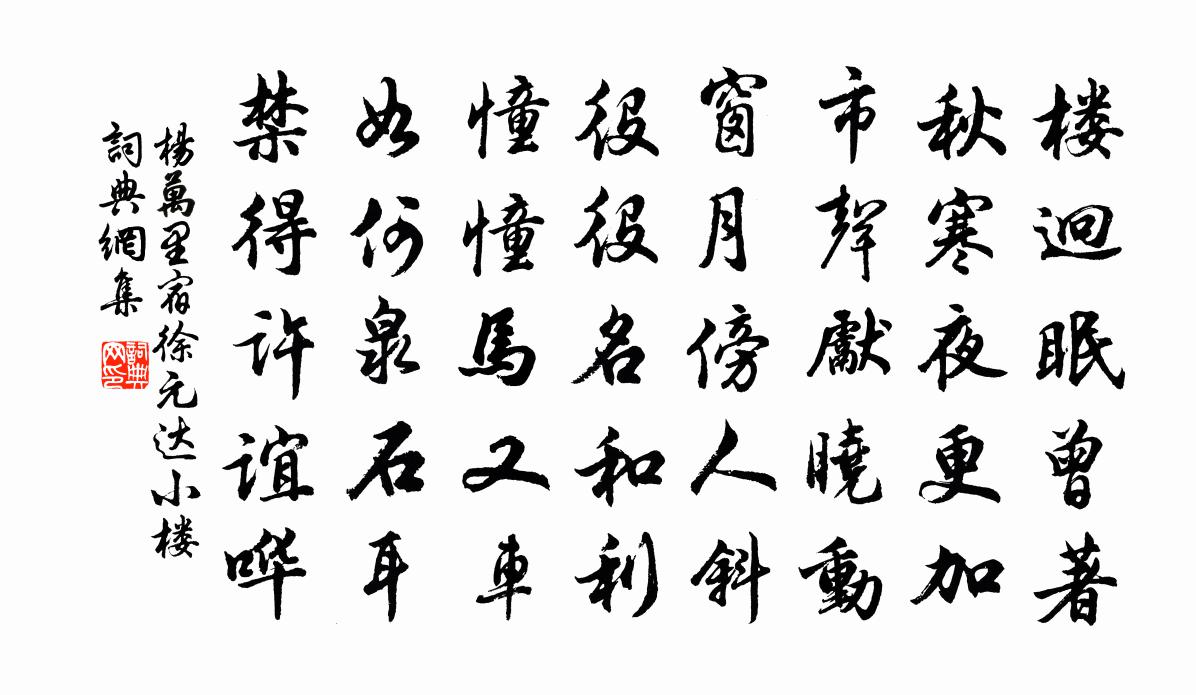 楼迥眠曾著
秋寒夜更加
市聲獻曉動
窗月傍人斜
役役名和利
憧憧馬又車
如何泉石耳
禁得許誼哗
楊萬里宿徐元达小楼
詞典網集
詞典网印